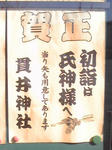 賀正
初詣は
氏神様へ
当り矢も用意してあります
貫井神社